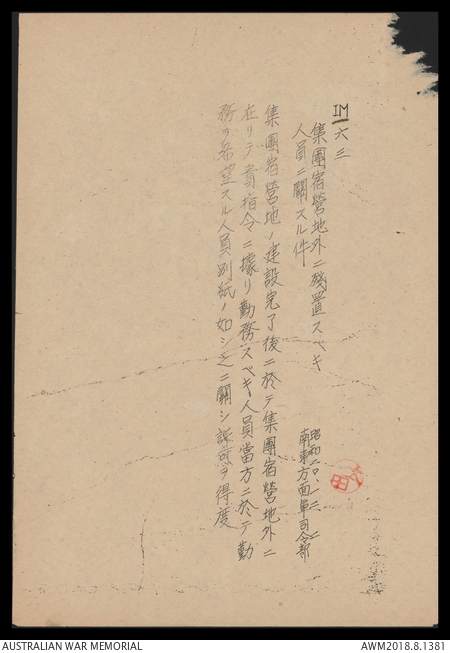 IM六三
集團宿營地外ニ殘置スベキ
人員ニ關スル件
昭和二〇、一二、二
南東方面軍司令部
集團宿營地ノ建設完了後ニ於テ集團宿營地外ニ
在リテ貴指令ニ據リ勤務スベキ人員當方ニ於テ勤
務ヲ希望スル人員別紙ノ如シ之ニ關シ許可ヲ得度
AUSTRALIAN WAR MEMORIAL
AWM2018.8.1381